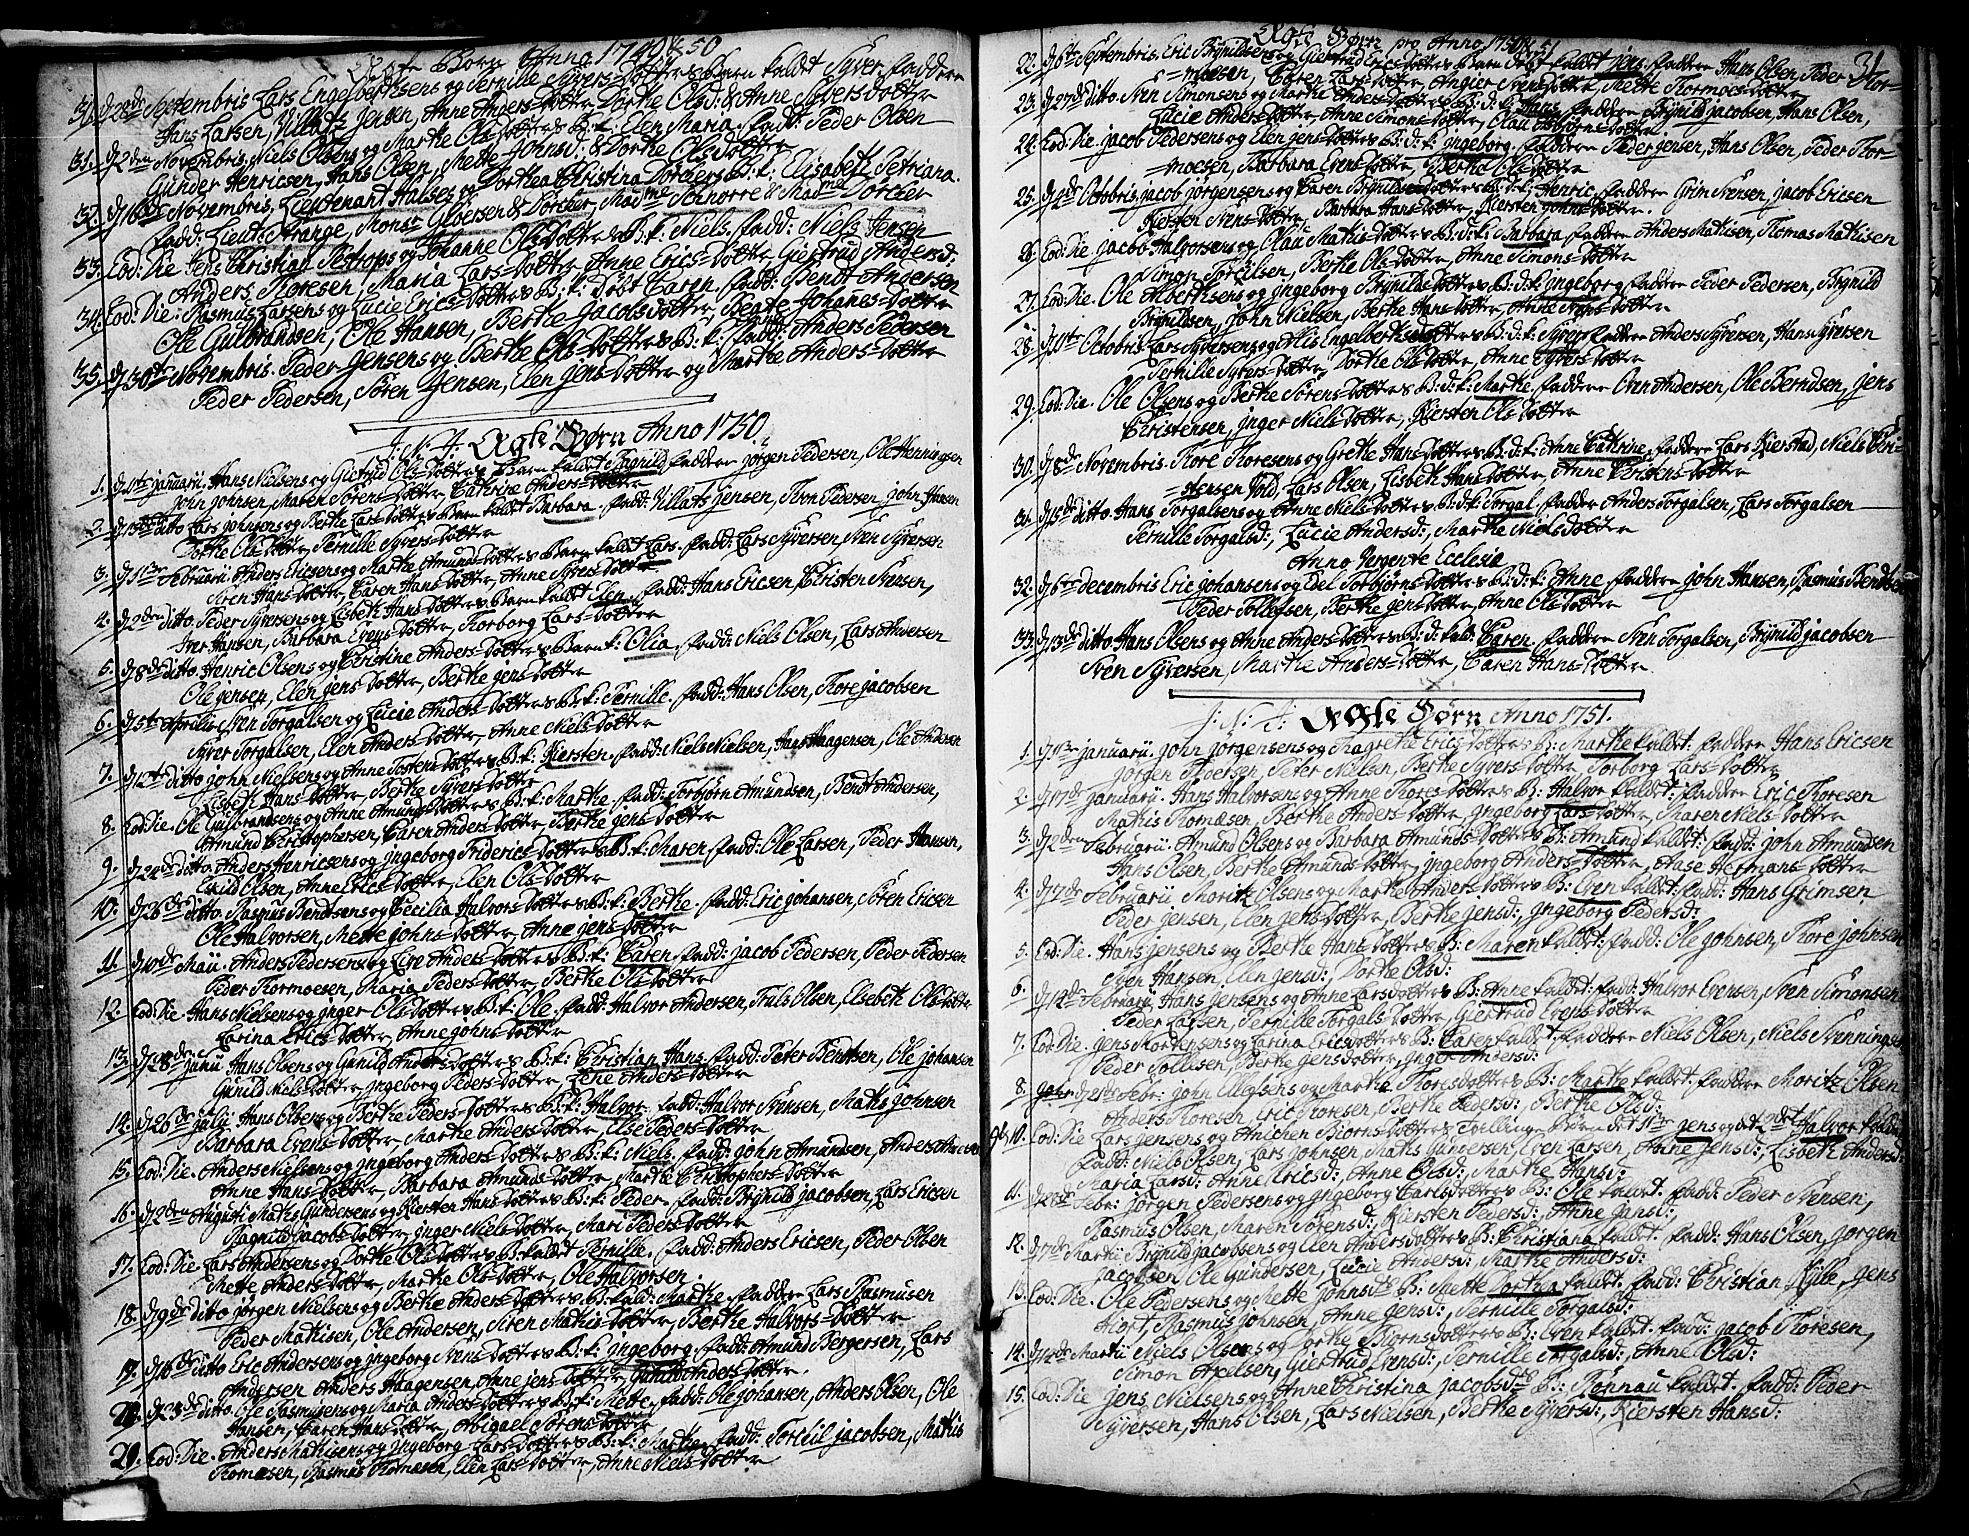 Ægte Børn Anno 1749 & 50
30. d 28de Septembris Lars Engelbertsens og Pernille Syvers-Dotters Barn kaldet Syver. faddere
Hans Larsen, Villats Jensen, Anne Anders-Dotter, Dorthe Olsd: & Anne Syvers-Dotter
31. d 2den Novembris. Niels Olsens og Marthe Ols-Dotters B: k: Elen Maria. fadd: Peder Olsen
Gunder Henricsen, Hans Olsen, Mette Johnsd: & Dorthe Ols-Dotter
32. d 16de Novembris. Lieutenant Halses og Dorthea Christina Dorchers B: k: Elisabeth Petriana.
fadd: Lieut: Strange, Mons: Gløersen & Dorcher, Madme Schnorre & Madme Dorcher
33. Eod: Die Jens Christian Pestrops og Johanne Ols-Dotters B: k: Niels. fadd: Niels Jensen
Anders Thoresen, Maria Lars-Dotter, Anne Erics-Dotter, Giertrud Andersd:
34. Eod: Die: Rasmus Larsens og Lucie Erics-Dotters B: k: Døbt Caren. fadd: Bendt Andersen
Ole Gulbrandsen, Ole Hansen, Berthe Jacobs-Dotter, Beate Johanes-Dotter
35. d 30te Novembris. Peder Jensens og Berthe Ols-Dotters B: k: fadd: Anders Pedersen
Peder Pedersen, Søren Jensen, Elen Jens-Dotter og Marthe Anders-Dotter
J: N: J: Ægte Børn Anno 1750.
1. d 1te Januarii. Hans Nielsens og Giertrud Ols-Dotters Barn kaldet faddere Jørgen Pedersen, Ole Henningsen
John Johnsen, Maren Sørens-Dotter, Cathrine Anders-Dotter
2. ditto Lars Johnsens og Berthe Lars-Dotters Barn kaldet Barbara. fadd: Villats Jensen, Iver Pedersen, John Hansen
Dorthe Ols-Dotter, Pernille Syvers-Dotter
3. Februarii Anders Ericsens og Marthe Amunds-Dotters Barn kaldet Lars. fadd: Lars Syversen, Sven Syversen
Siren Hans-Dotter, Caren Hans-Dotter, Anne Syvers-Dotter
4. d 2den ditto. Peder Syversens og Lisbeth Hans-Dotters Barn kaldet Elen. fadd: Hans Ericsen, Christen Svensen,
Iver Hansen, Barbara Evens-Dotter, Torborg Lars-Dotter
5. d 8de ditto. Henric Olsens og Christine Anders-Dotters Barn k: Olia. fadd: Niels Olsen, Lars Andersen
Ole Jensen, Elen Jens-Dotter, Berthe Jens-Dotter
6. d 5te Aprilis Sven Torgalsen og Lucie Anders-Dotters B: k: Pernille. fadd: Hans Olsen, Thore Jacobsen
Syver Torgalsen, Elen Anders-Dotter, Anne Niels-Dotter
7. d 12te ditto John Nielsens og Anne Tostens-Dotters B: k: Kiersten. fadd: Niels Nielsen, Hans Haagensen, Ole Andersen
Lisbeth Hans-Dotter, Berthe Syvers-Dotter
8. Eod: Die. Ole Gulbrandsens og Anne Amunds-Dotters B: k: Marthe. fadd: Torbjørn Amundsen, Bendt Andersen,
Amund Christophersen, Caren Anders-Dotter, Berthe Jens-Dotter
9. d 24de ditto. Anders Henricsens og Ingeborg Friderics-Dotters B: k: Maren. fadd: Ole Larsen, Peder Hansen,
Evild Olsen, Anne Erics-Dotter, Elen Ols-Dotter
10. d 26de ditto. Rasmus Bendtsens og Cecilia Halvors-Dotters B: k: Berthe. fadd: Eric Johansen, Søren Ericsen
Ole Halvorsen, Mette Johns-Dotter, Anne Jens-Dotter
11. d 10de Maii. Anders Pedersens og Lire Anders-Dotters B: k: Caren. fadd: Jacob Pedersen, Peder Pedersen
Peder Thormoesen, Maria Peders-Dotter, Berthe Ols-Dotter
12. Eod: Die. Hans Nielsens og Inger Ols-Dotters B: k: Ole. fadd: Halvor Andersen, Truls Olsen, Elsebeth Ols-Dotter
Carina Erics-Dotter, Anne Johns-Dotter
13. d 28de Junii Hans Olsens og Gunild Anders-Dotters B: k: Christian Hans. fadd: Peter Bendtsen, Ole Johansen
Gunild Niels-Dotter, Ingeborg Peders-Dotter, Lene Anders-Dotter
14. d 26de Julii Hans Olsens og Berthe Peders-Dotters B: k: Halvor. fadd: Halvor Svensen, Mathis Johnsen
Barbara Evens-Dotter, Marthe Anders-Dotter, Else Peders-Dotter
15. Eod: Die. Anders Nielsens og Ingeborg Anders-Dotters B: k: Niels. fadd: John Amundsen, Anders Amundsen
Anne Hans-Dotter, Barbara Amunds-Dotter, Marthe Christophers-Dotter
16. d 2den Augusti Mathis Gundersens og Kiersten Hans-Dotters B: k: Peder. fadd: Brynild Jacobsen, Lars Ericsen
Ragnild Jacobs-Dotter, Inger Niels-Dotter, Mari Peders-Dotter
17. Eod: Die. Lars Andersens og Dorthe Ols-Dotters B: kaldet Pernille. fadd: Anders Ericsen, Peder Olsen
Mette Anders-Dotter, Marthe Ols-Dotter, Ole Halvorsen
18. d 9de ditto Jørgen Nielsens og Berthe Anders-Dotters B: kald: Marthe. faddere Lars Rasmusen
Peder Mathisen, Ole Andersen, Siren Mathis-Dotter, Berthe Halvors-Dotter
19. d 16de ditto Eric Andersens og Ingeborg Svens-Dotters B: k: Ingeborg. fadd: Amund Bergersen, Lars
Andersen Anders Haagensen, Anne Jens-Dotter, Gunild Anders-Dotter.
20. d 23de ditto. Ole Rasmusens og Maria Anders-Dotters B: k: Mette. fadd: Ole Johansen, Anders Olsen, Ole
Hansen, Caren Hans-Dotter, Abigael Sørens-Dotter
21. Eod: Die. Anders Mathisens og Ingeborg Lars-Dotters B: k: Marthe. fadd: Torchil Jacobsen, Mathis
Thomæsen, Rasmus Thomæsen, Elen Lars-Dotter, Anne Niels-Dotter
Ægte Børn pro Anno 1750 & 51
31
22. d 6te Septembris. Eric Brynildsens og Giertrud Erics-Dotters Barn Døbt kaldet Jens. faddere Hans Olsen, Peder Thor-
=moesen, Caren Lars-Dotter, Angier Svens-Dotter, Mette Thormoes-Dotter
23. d 27de ditto. Sven Simonsens og Marthe Anders-Dotters B: d: k: Hans. faddere Brynild Jacobsen, Hans Olsen,
Lucie Anders-Dotter, Anne Simons-Dotter, Olau Asbjørns-Dotter
24. Eod: Die. Jacob Pedersens og Elen Jens-Dotters B: d: k: Ingeborg. faddere Peder Jensen, Hans Olsen, Peder Thor-
moesen, Barbara Evens-Dotter, Berthe Ols-Dotter
25. d 4de Octobris. Jacob Jørgensens og Caren Brynilds-Dotters B: d: k: Henric. faddere Grim Svensen, Jacob Ericsen
Kiersten Svens-Dotter, Barbara Hans-Dotter, Kiersten Johns-Dotter.
26. Eod: Die. Jacob Halvorsens og Olau Mathis-Dotters B: d: k: Barbara. faddere Anders Mathisen, Thomas Mathisen
Simon Torchilsen, Berthe Ols-Dotter, Anne Simons-Dotter
27. Eod: Die. Ole Alberthsens og Ingeborg Brynilds-Dotters B: d: k: Ingeborg faddere Peder Pedersen, Brynild
Brynildsen, John Nielsen, Berthe Hans-Dotter, Anne Lars-Dotter
28. d 11te Octobris Lars Syversens og Alis Engelberths-Dotters B: d: k: Syver faddere Anders Syversen, Hans Syversen
Pernille Syvers-Dotter, Dorthe Ols-Dotter, Anne Syvers-Dotter
29. Eod: Die. Ole Olsens og Berthe Sørens-Dotters B: d: k: Marthe. faddere Oven Andersen, Ole Berndsen, Jens
Christensen, Inger Niels-Dotter, Kiersten Ols-Dotter
30. d 8de Novembris. Thore Thoresens og Grethe Hans-Dotters B: d: k: Anne Cathrine. faddere Lars Kierstad, Niels Chri-
=stensen Lars Olsen, Lisbeth Hans-Dotter, Anne Christens-Dotter
31. d 15de ditto. Hans Torgalsens og Anne Niels-Dotters B: d: k: Torgal. faddere Anders Torgalsen, Lars Torgalsen
Pernille Torgalsd:, Lucie Andersd:, Marthe Nielsdotter
Anno Vergente Ecclesiæ
32. d 6te Decembris Eric Johansens og Edel Torbjørns-Dotters B: d: k: Anne. faddere John Hansen, Rasmus Bendtsen
Peder Tollefsen, Berthe Jens-Dotter, Anne Ols-Dotter
33. d 13de ditto Hans Olsens og Anne Anders-Dotters B: d: kald: Caren. faddere Sven Torgalsen, Brynild Jacobsen
Sven Syversen, Marthe Anders-Dotter, Caren Hans-Dotter
J: N: J: Ægte Børn Anno 1751.
1. d 1te Januarii John Jørgensens og Magrethe Erics-Dotters B: Marthe kaldet. faddere Hans Ericsen
Jørgen Pedersen, Peter Nielsen, Berthe Syvers-Dotter, Torborg Lars-Dotter
2. d 17de Januarii. Hans Halvorsens og Anne Thores-Dotters B: Halvor kaldet: faddere Eric Thoresen
Mathis Thomæsen, Berthe Anders-Dotter, Ingeborg Lars-Dotter, Maren Niels-Dotter
3. d 2den Februarii. Amund Olsens og Barbara Amunds-Dotters B: Amund kaldet: fadd: John Amundsen
Hans Olsen, Berthe Amunds-Dotter, Ingeborg Anders-Dotter, Aase Hermans-Dotter
4. d 7de Februarii Moritz Olsens og Marthe Anders-Dotters B: Even kaldet. fadd: Hans Grimsen
Peder Jensen, Elen Jens-Dotter, Berthe Jensd:, Ingeborg Pedersd:
5. Eod: Die. Hans Jensens og Berthe Hans-Dotters B: Maren kaldet: fadd: Ole Johnsen, Thore Johnsen
Sven Hansen, Elen Jensd:, Dorthe Olsd:
6. d 14de Februarii Hans Jensens og Anne Larsdotters B: Anne kaldet: fadd: Halvor Evensen, Sven Simonsen
Peder Larsen, Pernille Torgals-Dotter, Giertrud Evens-Dotter
7. Eod: Die. Jens Mortensens og Carina Ericsdotters B: Caren kaldet. faddere Niels Olsen, Niels Svenningsen
Peder Tollefsen, Berthe Jensdotter, Inger Andersd:
8. d 21de Febr: John Ellefsens og Marthe Thoresdotters B: Marthe kaldet. faddere Moritz Olsen
Anders Thoresen Eric Thoresen, Berthe Pedersd:, Berthe Olsd:
9/10. Eod: Die Lars Jensens og Anichen Biørns-Dotters Tvillinger det 1te Jens og det 2det Halvor kaldet
fadd: Niels Olsen, Lars Johnsen, Mathis Gundersen, Even Larsen, Anne Jensd:, Lisbeth Andersd:
Maria Larsd: Anne Ericsd:, Anne Olsd: Marthe Hansd:
11. d 28de Febr: Jørgen Pedersens og Ingeborg Carlsdotters B: Ole kaldet. fadd: Peder Svensen,
Rasmus Olsen, Maren Sørensd:, Kiersten Pedersd:, Anne Jansd:,
12. d 7de Martii Brynild Jacobsens og Elen Andersdotters B: Christiana kaldet. fadd: Hans Olsen, Jørgen
Jacobsen Ole Gundersen, Lucie Andersd: Marthe Andersd:
13. Eod: Die. Ole Pedersens og Mette Johnsd: B: Mette Dorthea kaldet. fadd: Christian Kile, Jens
Hiort, Rasmus Johnsen, Anne Jensd:, Pernille Torgalsd:
14. d 14de Martii Niels Olsens og Dorthe Biørnsdotters B: Even kaldet. fadd: Jacob Thoresen,
Simon Axelsen, Giertrud Evensd:, Pernille Torgalsd:, Anne Olsd:
15. Eod: Die Jens Nielsens og Anne Christina Jacobsd: B: Rønnau kaldet. fadd: Peder
Syversen, Hans Olsen, Lars Nielsen, Berthe Syversd:, Kiersten Hansd: